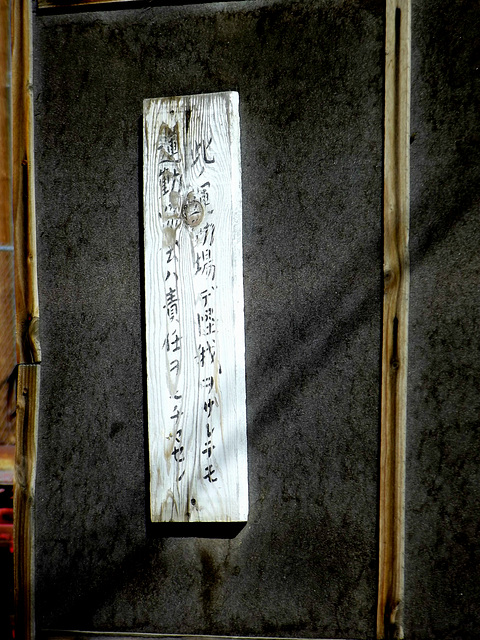 此ノ運動場デ怪我ヲサレテモ
運動 ハ責任ヲモチマセン